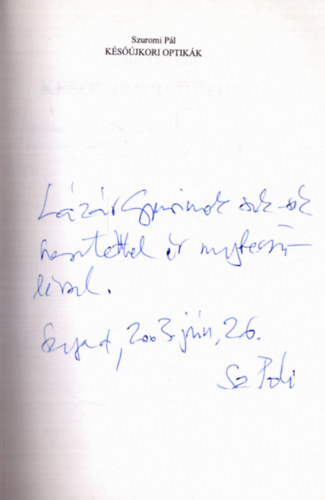 Szuromi Pál
KÉSŐÚJKORI OPTIKÁK
Lázár Gyurinak sok-sok
szeretettel és megbecsü-
léssel.
Szeged, 2003 jún. 26.
Sz Pali